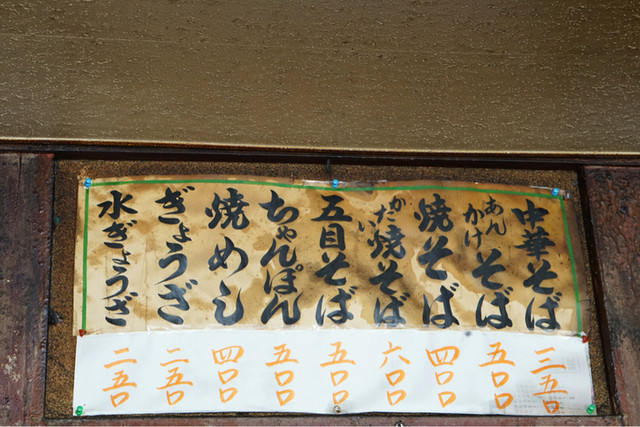 中華そば
あんかけそば
焼そば
かたい焼そば
五目そば
ちゃんぽん
焼めし
ぎょうざ
水ぎょうざ
三五〇
五〇〇
四〇〇
六〇〇
五〇〇
五〇〇
四〇〇
二五〇
二五〇